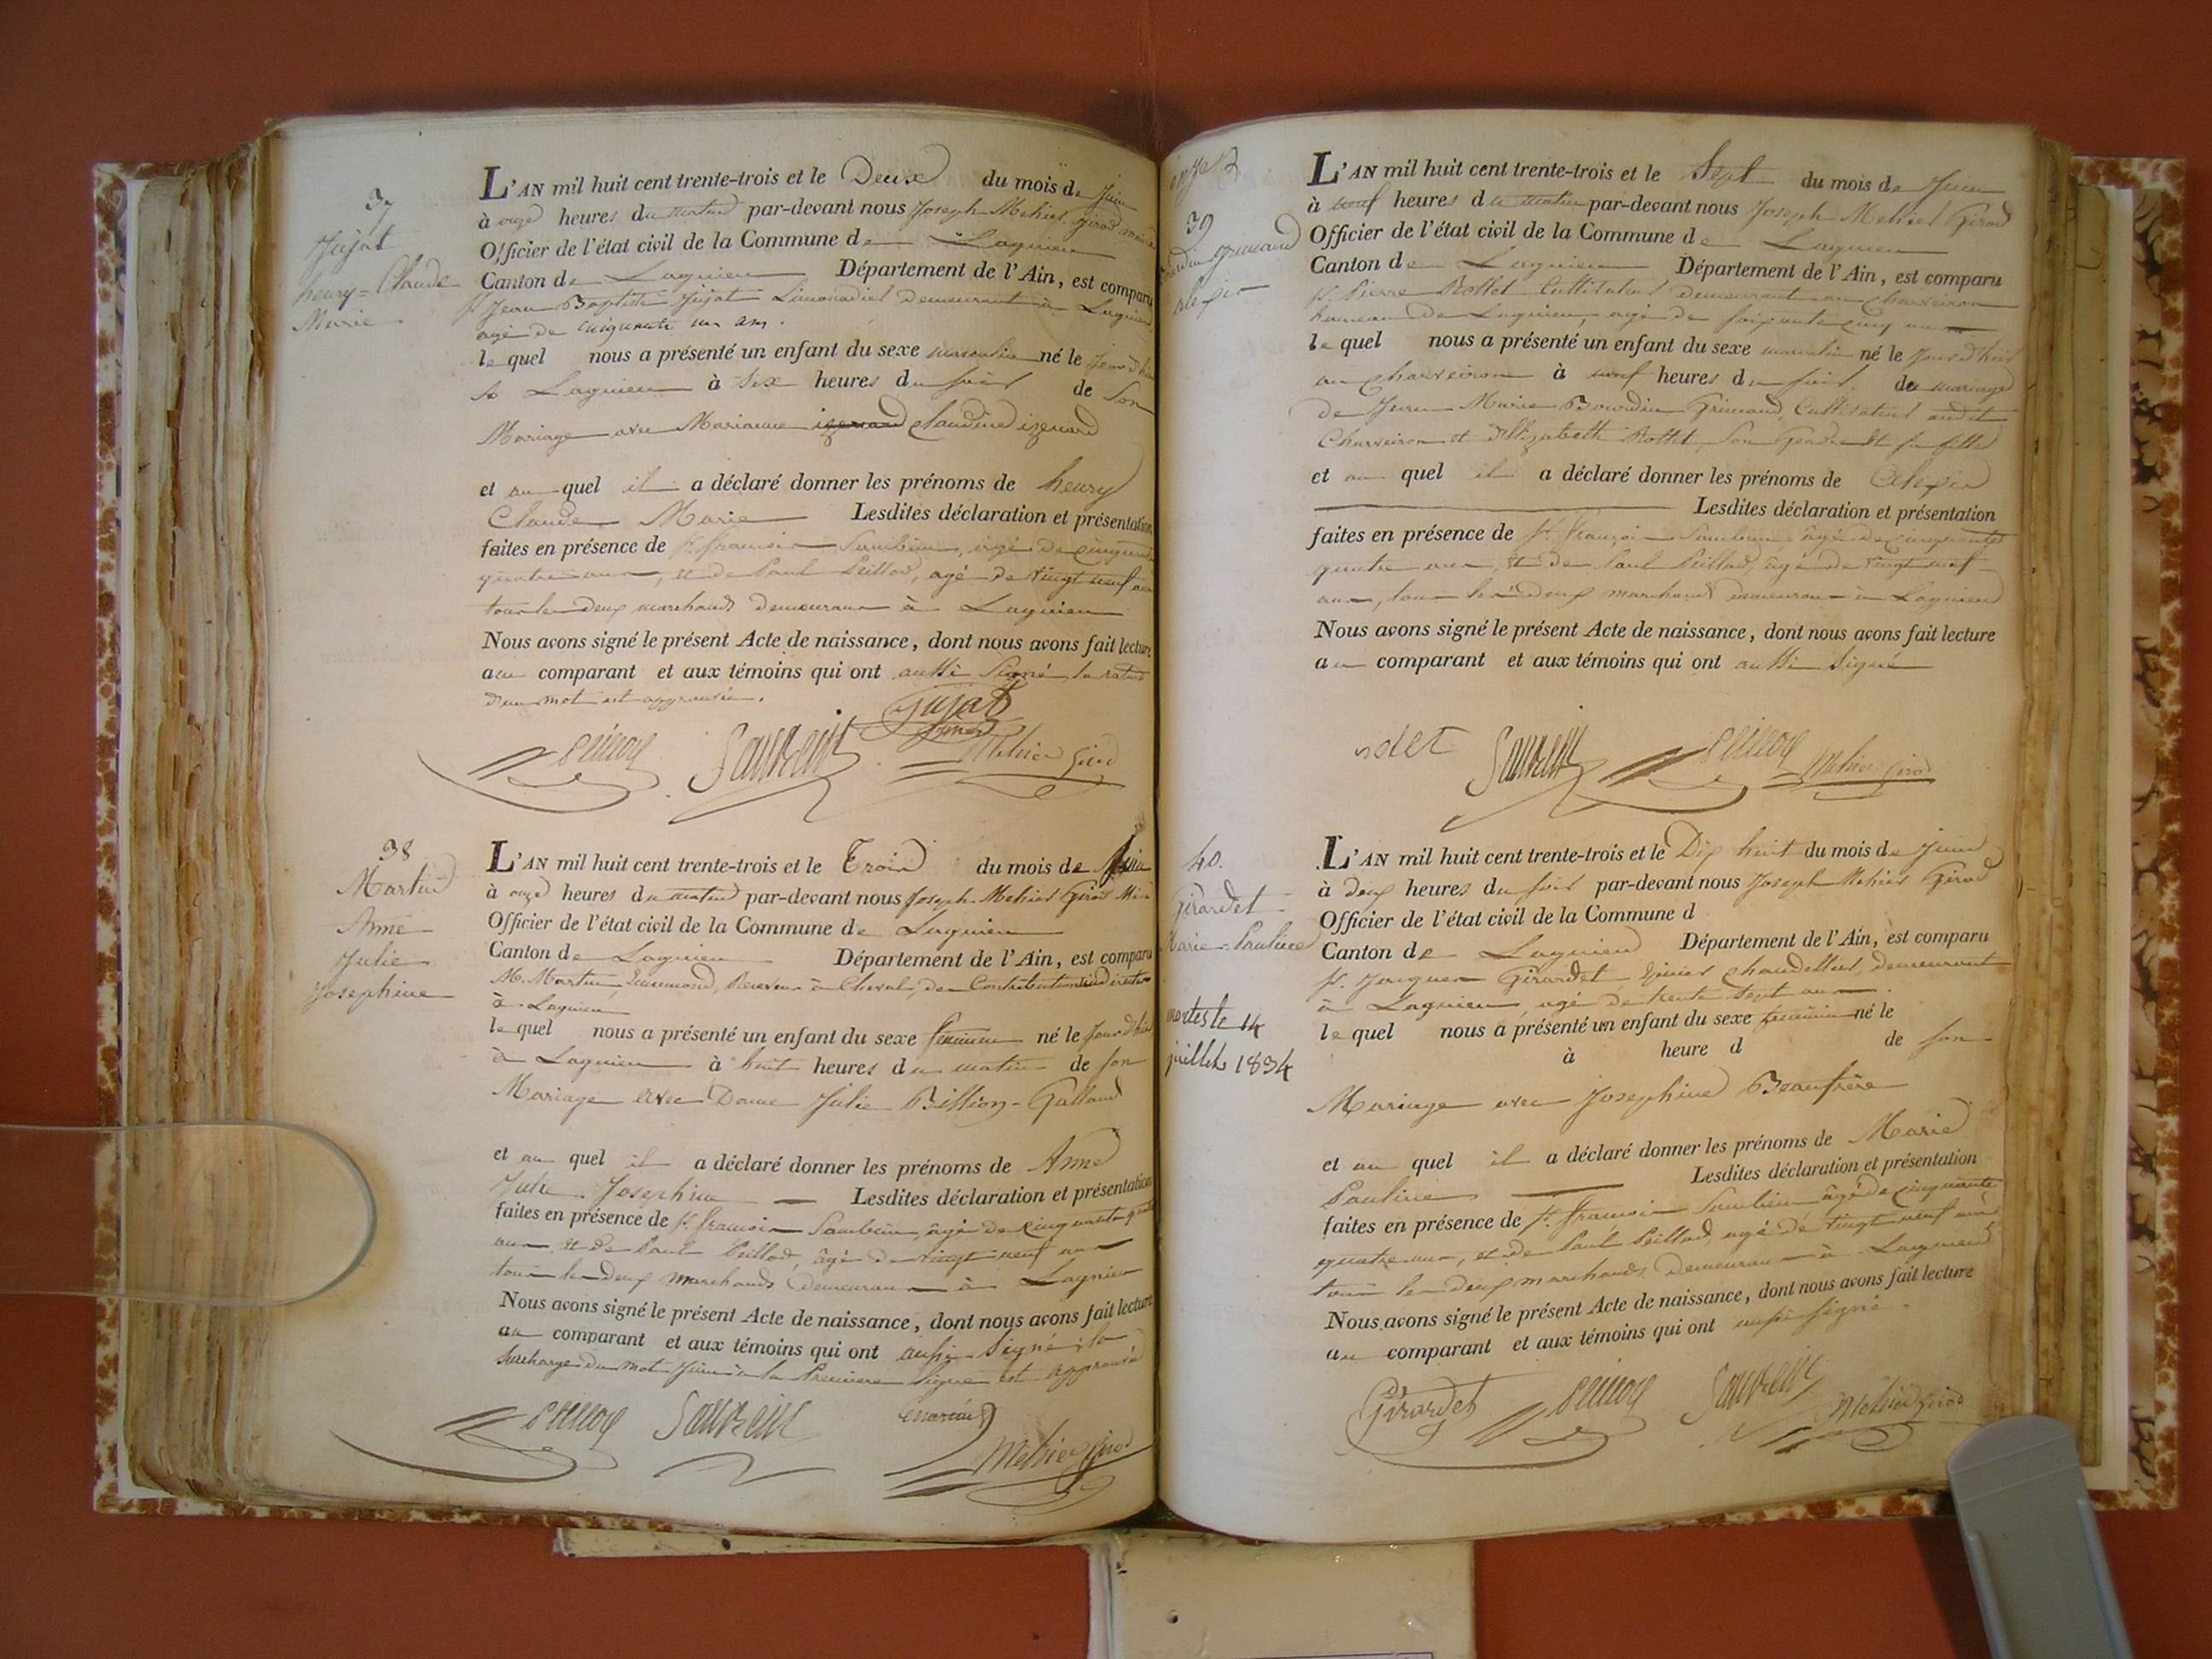 37
Jujat
henry = Claude
Marie
L'AN mil huit cent trente-trois et le Deux du mois de Juin
à onze heures du matin par-devant nous Joseph Mehier Girod maire
Officier de l'état civil de la Commune de Lagnieu
Canton de Lagnieu Département de l'Ain, est comparu
Sr. Jean Baptiste Jujat Limonadier demeurant à Lagnieu
agé de cinquante un ans.
le quel nous a présenté un enfant du sexe masculin né le jour d'hier
à Lagnieu à Six heures du soir de Son
Mariage avec Marianne izenard claudine izenard
et au quel il a déclaré donner les prénoms de henry
Claude Marie Lesdites déclaration et présentation
faites en présence de Sr. françois , agé de cinquante
quatre ans, et de Paul Peillod, agé de vingt neuf ans
tous les deux marchands demeurans à Lagnieu
Nous avons signé le présent Acte de naissance, dont nous avons fait lecture
au comparant et aux témoins qui ont aussi Signé, la rature
d'un mot est approuvée.
Jujat
Mehier Girod
38
Martin
Anne
Julie
Josephine
L'AN mil huit cent trente-trois et le Trois du mois de Juin
à onze heures du matin par-devant nous Joseph Mehier Girod Maire
Officier de l'état civil de la Commune de Lagnieu
Canton de Lagnieu Département de l'Ain, est comparu
M. Martin , Receveur à Cheval, des Contributions indirectes
à Lagnieu
le quel nous a présenté un enfant du sexe feminin né le jour d'hier
à Lagnieu à huit heures du matin de son
Mariage avec Dame Julie Billion-Galland
et au quel il a déclaré donner les prénoms de Anne
Julie Josephine Lesdites déclaration et présentation
faites en présence de Sr. françois , âgé de cinquante quatre
ans et de Paul Peillod, âgé de vingt neuf ans
tous les deux marchands demeurans à Lagnieu
Nous avons signé le présent Acte de naissance, dont nous avons fait lecture
au comparant et aux témoins qui ont aussi Signé, la
surcharge du mot Juin à la Premiere ligne est approuvée
Martin
Mehier Girod
39
Bourdin grimaud
alexis
L'AN mil huit cent trente-trois et le Sept du mois de Juin
à neuf heures du matin par-devant nous Joseph Mehier Girod
Officier de l'état civil de la Commune de Lagnieu
Canton de Lagnieu Département de l'Ain, est comparu
Sr. Pierre Rottet Cultivateur demeurant au Charveiron
hameau de Lagnieu, agé de soixante cinq ans
le quel nous a présenté un enfant du sexe masculin né le jour d'hier
au charveiron à neuf heures du soir de mariage
de Jean Marie Bourdin Grimaud, Cultivateur audit
Charveiron et Elizabeth Rottet, son Gendre et sa fille
et au quel il a déclaré donner les prénoms de Alexis
Lesdites déclaration et présentation
faites en présence de Sr. françois âgé de cinquante
quatre ans, et de Paul Peillod, âgé de vingt neuf
ans, tous les deux marchands demeurans à Lagnieu
Nous avons signé le présent Acte de naissance, dont nous avons fait lecture
au comparant et aux témoins qui ont aussi Signé
Mehier Girod
40.
Girardet
Marie = Pauline
morte le 14
juillet 1834
L'AN mil huit cent trente-trois et le Dix huit du mois de Juin
à deux heures du soir par-devant nous Joseph Mehier Girod
Officier de l'état civil de la Commune d
Canton de Lagnieu Département de l'Ain, est comparu
Sr. Jacques Girardet Epicier chandellier, demeurant
à Lagnieu, agé de trente Sept ans.
le quel nous a présenté un enfant du sexe feminin né le
à heure d de son
Mariage avec Josephine Beaufrère
et au quel il a déclaré donner les prénoms de Marie
Pauline Lesdites déclaration et présentation
faites en présence de Sr. françois âgé de cinquante
quatre ans, et de Paul Peillod agé de vingt neuf ans
tous les deux marchands demeurans à Lagnieu
Nous avons signé le présent Acte de naissance, dont nous avons fait lecture
au comparant et aux témoins qui ont aussi signé.
Girardet
Mehier Girod